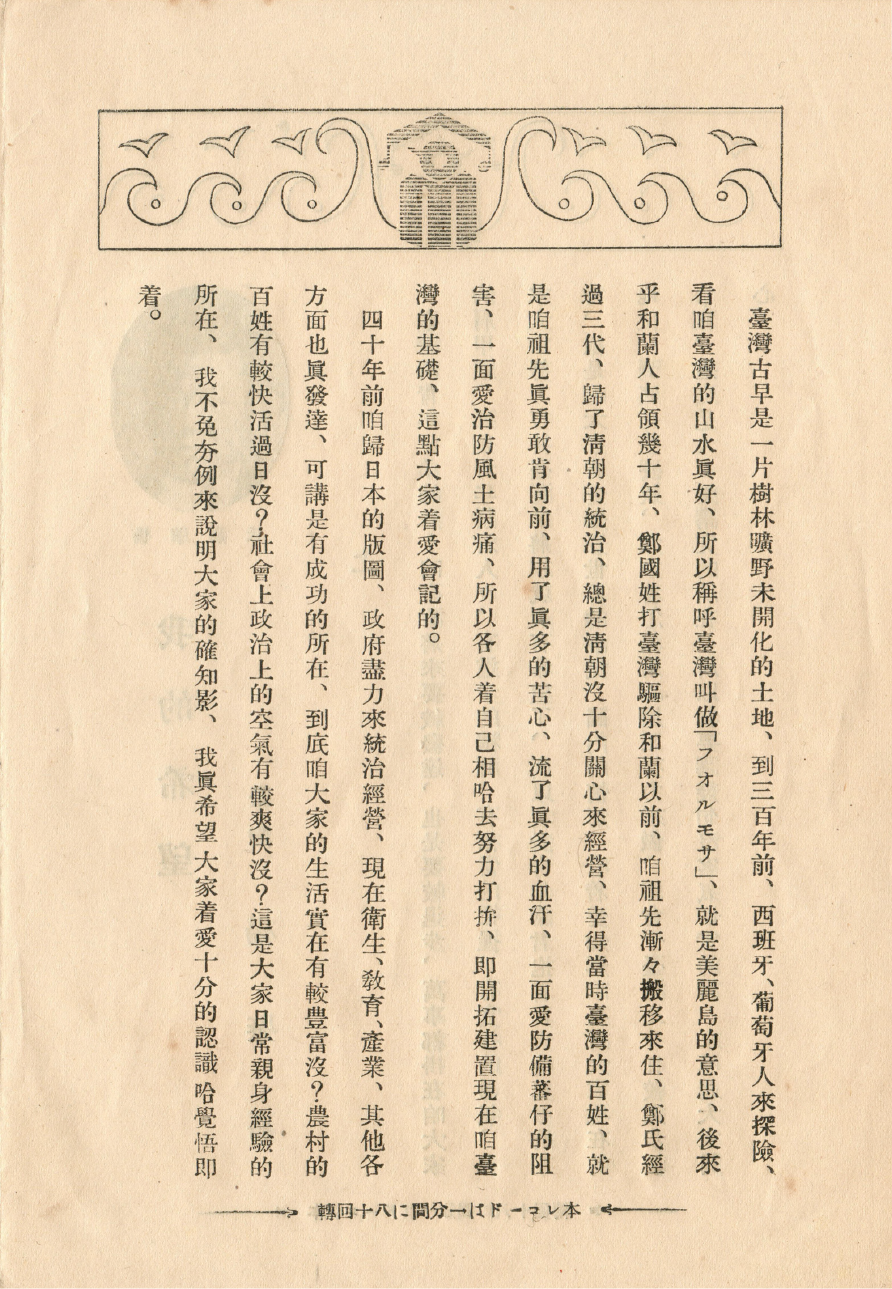 臺灣古早是一片樹林曠野未開化的土地、到三百年前、西班牙、葡萄牙人來探險、
看咱臺灣的山水眞好、所以稱呼臺灣叫做「フオルモサ」、就是美麗島的意思、後來
乎和蘭人占領幾十年、鄭國姓打臺灣驅除和蘭以前、咱祖先漸々搬移來住、鄭氏經
過三代、歸了淸朝的統治、總是淸朝沒十分關心來經營、幸得當時臺灣的百姓、就
是咱祖先眞勇敢肯向前、用了眞多的苦心、流了眞多的血汗、一面愛防備蕃仔的阻
害、一面愛治防風土病痛、所以各人着自己相哈去努力打拚、即開拓建置現在咱臺
灣的基礎、這點大家着愛會記的。
四十年前咱歸日本的版圖、政府盡力來統治經營、現在衛生、敎育、產業、其他各
方面也眞發達、可講是有成功的所在、到底咱大家的生活實在有較豐富沒？農村的
百姓有較快活過日沒？社會上政治上的空氣有較爽快沒？這是大家日常親身經驗的
所在、我不免夯例來說明大家的確知影、我眞希望大家着愛十分的認識哈覺悟即
着。
本レコードは一分間に八十回轉